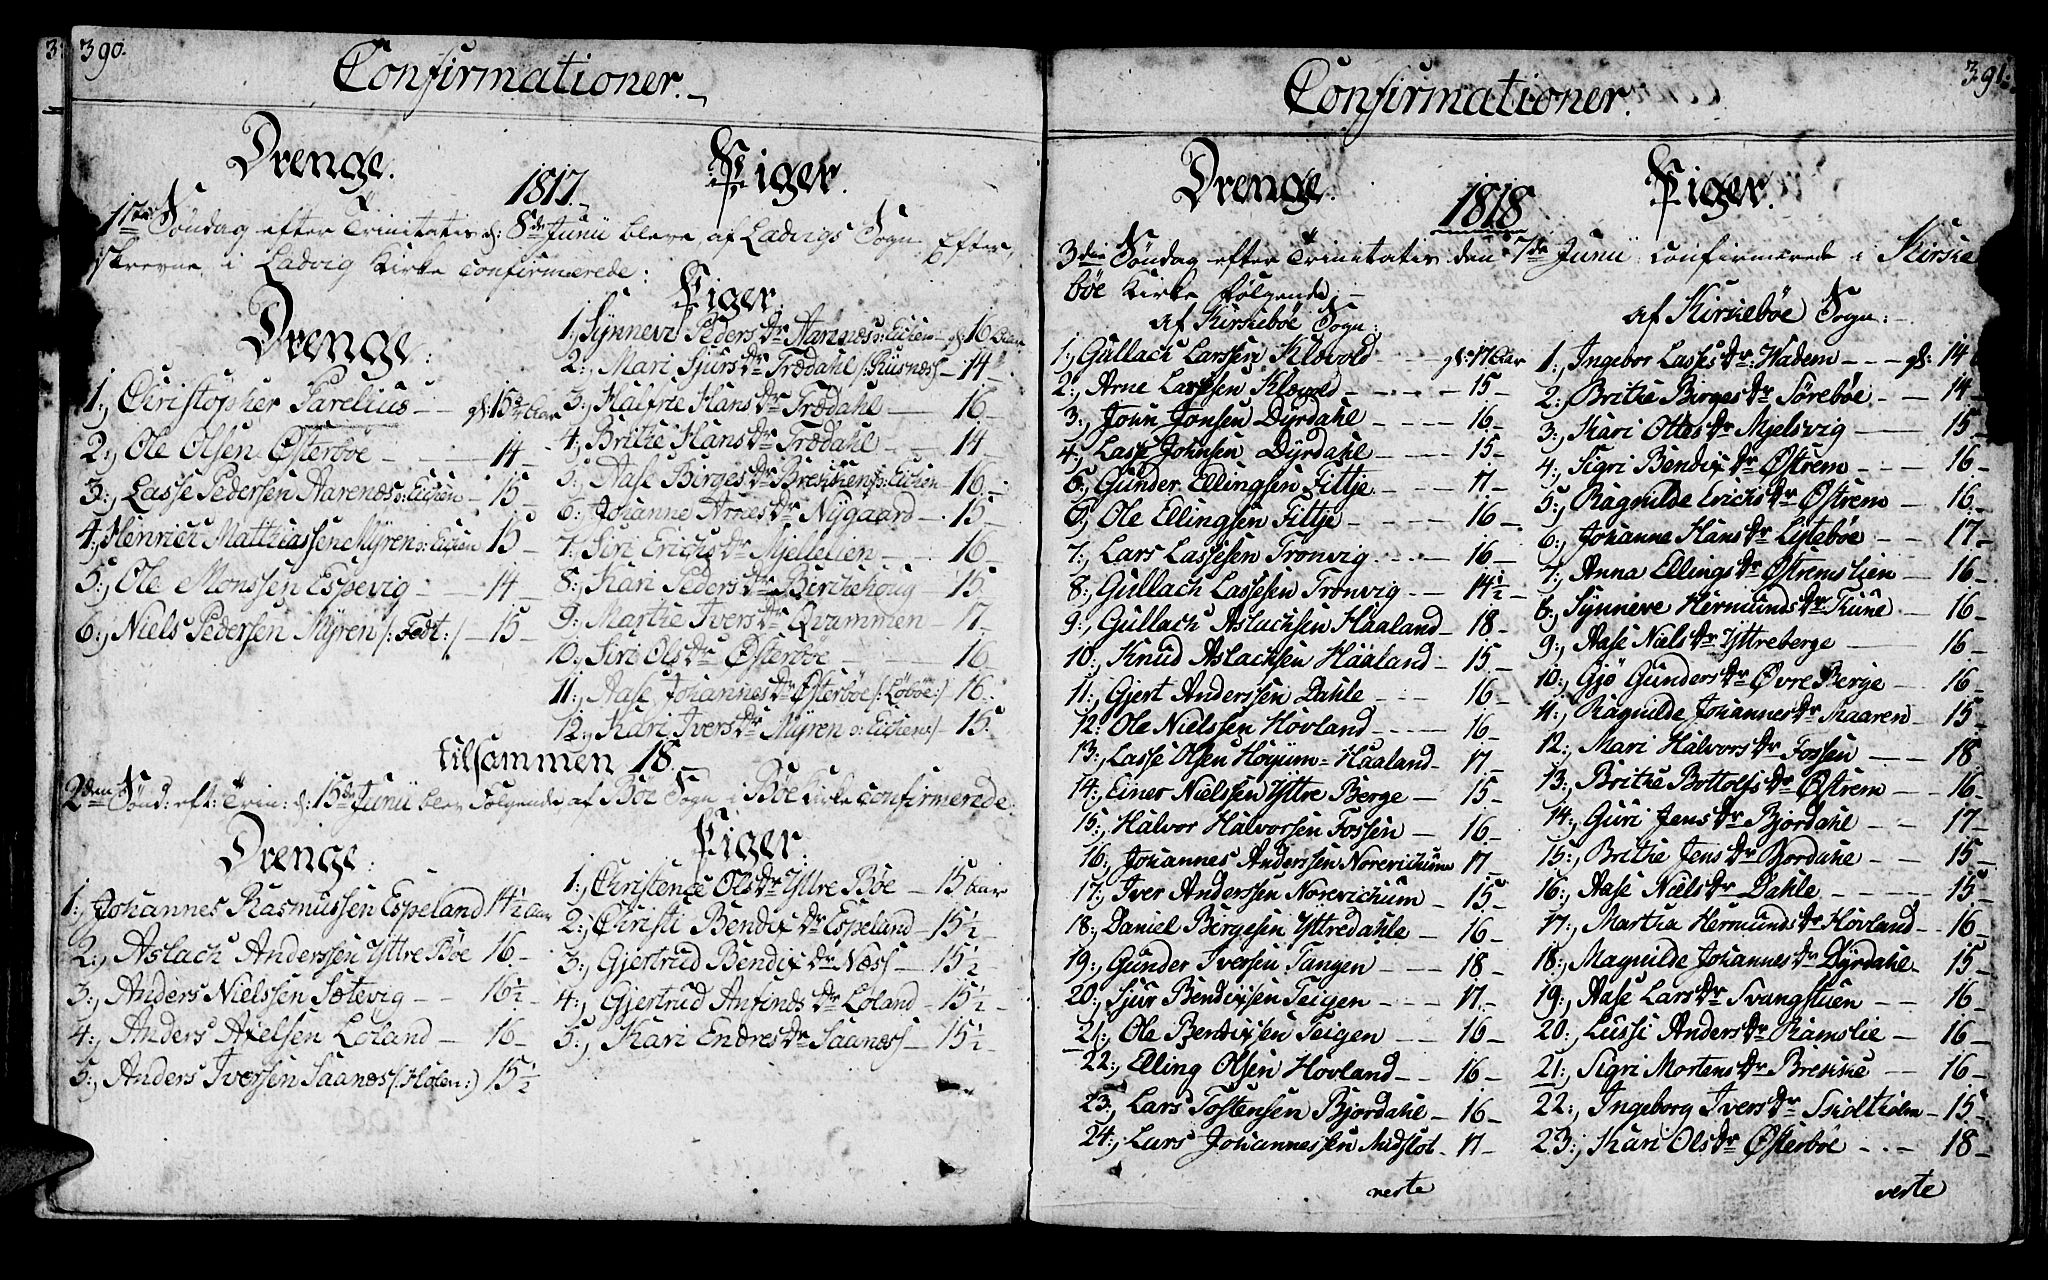 390.
Confirmationer.
Drenge. 1817. Piger.
1ste Søndag efter Trinitatis d: 8de Junii bleve af Ladvigs Sogn Efter,
skrevne i Ladvig Kirke confirmerede:
Drenge:
1:, Christopher Parelius - - gl: 15 3/4 Aar
2:, Ole Olsen Østerbøe - 14 -
3:, Lasse Pedersen Aarenæs o: Eichen - 15 -
4:, Henrich Matthiassen Myren o: Eichen 15 -
5:, Ole Monssen Espevig - 14 -
6:, Niels Pedersen Myren /: Fodt :/ - 15 -
Piger.
1:, Synneve Peders Dr Aarnæs o: Eichen - gl: 16 Aar
2:, Mari Sjurs Dr Trædahl /: Riisnæs/ - 14 -
3:, Halfrie Hans Dr Trædahl - 16 -
4:, Brithe Hans Dr Trædahl - 14 -
5:, Aase Birges Dr Brekken o: Eichen - 16 -
6:, Johanne Arnes Dr Nygaard - 15 -
7:, Siri Erichs Dr Mjelleien - 16 -
8:, Kari Peders Dr Birchehoug - 15 -
9:, Marthe Ivers Dr Qvammen - 17 -
10:, Siri Ols Dr Østerbøe - 16 -
11:, Aase Johannes Dr Østerbøe /: Løbøe :/ 16.
12:, Kari Ivers Dr Myren o: Eichen :/ - 15.
tilsammen 18. -
2den Sönd: eft: Trin: d: 15de Junii blev Følgende af Bøe Sogn i Bøe Kirke confirmerede.
Drenge:
1:, Johannes Rasmussen Espeland 14 1/2 Aar
2:, Aslach Anderssen Yttre Bøe 16. -
3:, Anders Nielssen Sætevig - - 16 1/2 -
4:, Anders Axelsen Loland - 16 -
5:, Anders Iversen Saanæs /: Holen :/ 15 1/2
Piger:
1:, Christence Ols Dr Yttre Bøe - 15 Aar
2:, Christi Bendix Dr Espeland - 15 1/2 -
3:, Gjertrud Bendix Dr Næss - 15 1/2 -
4:, Gjertrud Anfinds Dr Loland - 15 1/2 -
5:, Kari Endres Dr Saanæs - 15 1/2 -
391.
Confirmationer.
Drenge. 1818. Piger.
3die Søndag efter Trinitatis den 7de Junii confirmerede i Kirke
bøe Kirke følgende: -
af Kirkebøe Sogn:
1:, Gullach Larssen Klovold - - - gl: 17 Aar
2:, Arne Larssen Klævold - - - 15 -
3:, John Jonsen Dyrdahl - - - 16 -
4:, Lasse Johnsen Dyrdahl - - - 15 -
5:, Gunder Ellingsen Fittje - - 17 -
6:, Ole Ellingsen Fittje - - - 16 -
7:, Lars Lassesen Tronvig - - - 16 -
8:, Gullach Lassesen Tronvig - - 14 1/2 -
9:, Gullach Aslachsen Haaland - 18 -
10:, Knud Aslachsen Haaland - 15 -
11:, Gjert Anderssen Dahle - - 16 -
12: Ole Nielssen Hovland - - - 16 -
13:, Lasse Olsen Høyum = Haaland - 17 -
14:, Einer Nielssen Yttre Berge - 15 -
15:, Halvor Halvorsen Fossen - 16 -
16:, Johannes Anderssen Norevichum 17 -
17:, Iver Anderssen Norevichum - 15 -
18:, Daniel Birgesen Yttredahle - 16 -
19:, Gunder Iversen Tangen - - 18 -
20:, Sjur Bendixsen Teigen - - - 17 -
21:, Ole Bendixsen Teigen - - 16 -
22:, Elling Olsen Hovland - - 16 -
23:, Lars Tostensen Bjordahl - 16 -
24:, Lars Johannessen Midslot - 17 -
verte
af Kirkebøe Sogn: -
1:, Ingebor Lasses Dr Vadem - - - gl: 14
2:, Brithe Birges Dr Sörebøe - - 14 -
3:, Kari Ottes Dr Mjelsvig - - 15
4:, Sigri Bendix Dr Østrem - - - 16 -
5:, Ragnilde Erichs Dr Østrem - 16 -
6:, Johanne Hans Dr Listebøe - - 17 -
7:, Anna Ellings Dr Østremslien - 16 -
8:, Synneve Hermunds Dr Tune - 16 -
9:, Aase Niels Dr Yttreberge - 16 -
10:, Gjø Gunders Dr Øvre Berge - 16 -
11:, Ragnilde Johannes Dr Maaren - 15 -
12:, Mari Halvors Dr Fossen - - 18
13:, Brithe Bottolfs Dr Østrem - 16 -
14:, Guri Jens Dr Bjordahl - - 17 -
15:, Brithe Jens Dr Bjordahl - - 15 -
16:, Aase Niels Dr Dahle - 15 -
17:, Martha Hermunds Dr Hovland - 16 -
18:, Magnilde Johannes Dr Dyrdahl - 15 -
19:, Aase Lars Dr Svangstuen - - 16 -
20:, Lussi Anders Dr Ramslie - 16 -
21:, Sigri Mortens Dr Brekke - - 16 -
22:, Ingeborg Ivers Dr - 15 -
23:, Kari Ols Dr Østerbøe - - - 18 -
verte